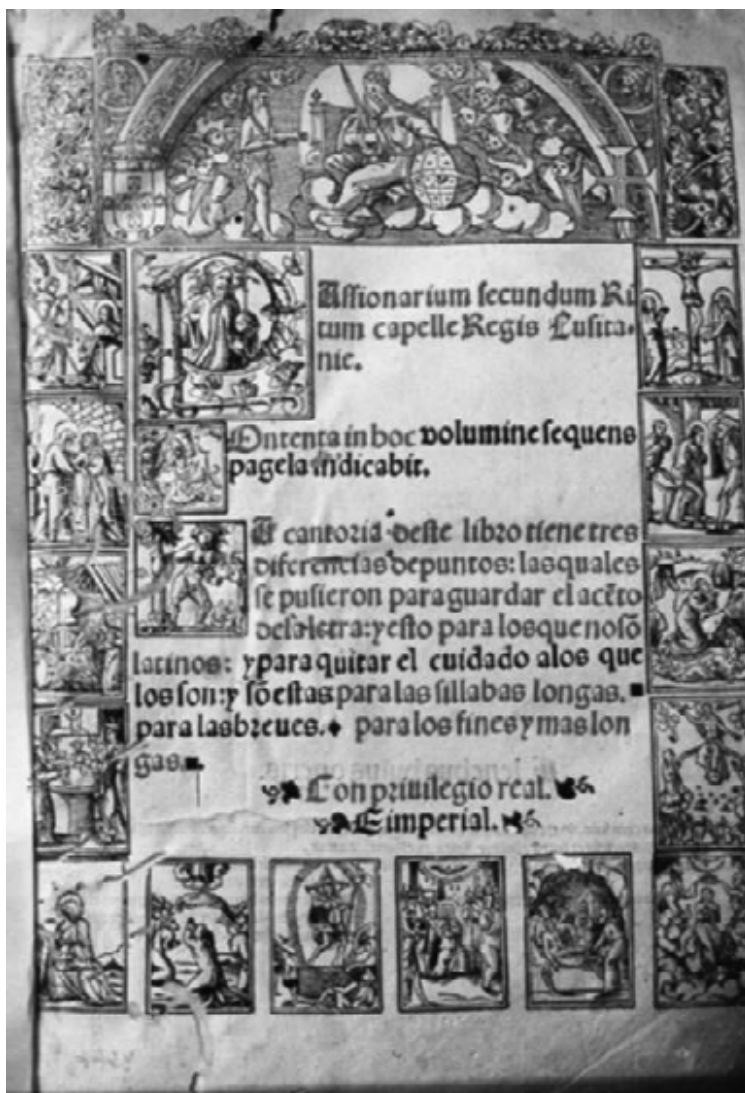 PAssionarium secundum Ri
tum capelle Regis Lusita-
nie.
COntenta in hoc volumine sequens
pagela indicabit.
LA cantoria deste libro tiene tres
diferencias de puntos: las quales
se pusieron para guardar el acẽto
dela letra: y esto para los que no sõ
latinos: y para quitar el cuidado a los que
los son: y sõ estas para las sillabas longas. ■
para las breues. ♦ para los fines y mas lon
gas.
Con priuilegio real.
E imperial.